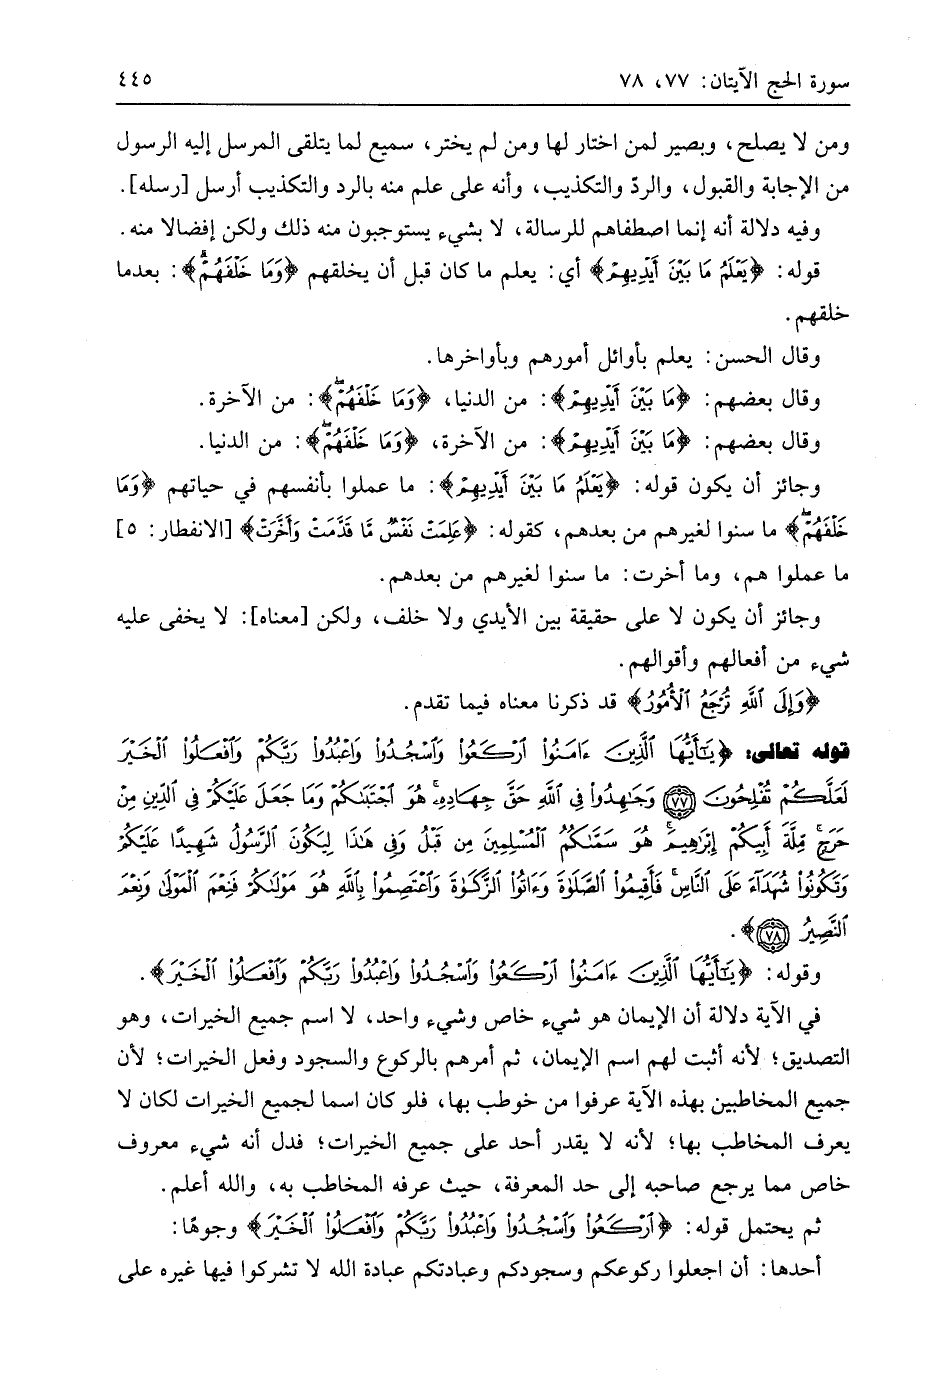 سورة الحج الآيتان: ٧٧، ٧٨ ٤٤٥
ومن لا يصلح، وبصير لمن اختار لها ومن لم يختر، سميع لما يتلقى المرسل إليه الرسول
من الإجابة والقبول، والردّ والتكذيب، وأنه على علم منه بالرد والتكذيب أرسل [رسله].
وفيه دلالة أنه إنما اصطفاهم للرسالة، لا بشيء يستوجبون منه ذلك ولكن إفضالا منه.
قوله: ﴿يَعْلَمُ مَا بَيْنَ أَيْدِيهِمْ﴾ أي: يعلم ما كان قبل أن يخلقهم ﴿وَمَا خَلْفَهُمْ﴾: بعدما
خلقهم.
وقال الحسن: يعلم بأوائل أمورهم وبأواخرها.
وقال بعضهم: ﴿مَا بَيْنَ أَيْدِيهِمْ﴾: من الدنيا، ﴿وَمَا خَلْفَهُمْ﴾: من الآخرة.
وقال بعضهم: ﴿مَا بَيْنَ أَيْدِيهِمْ﴾: من الآخرة، ﴿وَمَا خَلْفَهُمْ﴾: من الدنيا.
وجائز أن يكون قوله: ﴿يَعْلَمُ مَا بَيْنَ أَيْدِيهِمْ﴾: ما عملوا بأنفسهم في حياتهم ﴿وَمَا
خَلْفَهُمْ﴾ ما سنوا لغيرهم من بعدهم، كقوله: ﴿عَلِمَتْ نَفْسٌ مَّا قَدَّمَتْ وَأَخَّرَتْ﴾ [الانفطار: ٥]
ما عملوا هم، وما أخرت: ما سنوا لغيرهم من بعدهم.
وجائز أن يكون لا على حقيقة بين الأيدي ولا خلف، ولكن [معناه]: لا يخفى عليه
شيء من أفعالهم وأقوالهم.
﴿وَإِلَى ٱللَّهِ تُرْجَعُ ٱلْأُمُورُ﴾ قد ذكرنا معناه فيما تقدم.
قوله تعالى: ﴿يَٰٓأَيُّهَا ٱلَّذِينَ ءَامَنُوا۟ ٱرْكَعُوا۟ وَٱسْجُدُوا۟ وَٱعْبُدُوا۟ رَبَّكُمْ وَٱفْعَلُوا۟ ٱلْخَيْرَ
لَعَلَّكُمْ تُفْلِحُونَ ٧٧ وَجَٰهِدُوا۟ فِى ٱللَّهِ حَقَّ جِهَادِهِۦ هُوَ ٱجْتَبَىٰكُمْ وَمَا جَعَلَ عَلَيْكُمْ فِى ٱلدِّينِ مِنْ
حَرَجٍ مِّلَّةَ أَبِيكُمْ إِبْرَٰهِيمَ هُوَ سَمَّىٰكُمُ ٱلْمُسْلِمِينَ مِن قَبْلُ وَفِى هَٰذَا لِيَكُونَ ٱلرَّسُولُ شَهِيدًا عَلَيْكُمْ
وَتَكُونُوا۟ شُهَدَآءَ عَلَى ٱلنَّاسِ فَأَقِيمُوا۟ ٱلصَّلَوٰةَ وَءَاتُوا۟ ٱلزَّكَوٰةَ وَٱعْتَصِمُوا۟ بِٱللَّهِ هُوَ مَوْلَىٰكُمْ فَنِعْمَ ٱلْمَوْلَىٰ وَنِعْمَ
ٱلنَّصِيرُ ٧٨﴾.
وقوله: ﴿يَٰٓأَيُّهَا ٱلَّذِينَ ءَامَنُوا۟ ٱرْكَعُوا۟ وَٱسْجُدُوا۟ وَٱعْبُدُوا۟ رَبَّكُمْ وَٱفْعَلُوا۟ ٱلْخَيْرَ﴾.
في الآية دلالة أن الإيمان هو شيء خاص وشيء واحد، لا اسم جميع الخيرات، وهو
التصديق؛ لأنه أثبت لهم اسم الإيمان، ثم أمرهم بالركوع والسجود وفعل الخيرات؛ لأن
جميع المخاطبين بهذه الآية عرفوا من خوطب بها، فلو كان اسما لجميع الخيرات لكان لا
يعرف المخاطب بها؛ لأنه لا يقدر أحد على جميع الخيرات؛ فدل أنه شيء معروف
خاص مما يرجع صاحبه إلى حد المعرفة، حيث عرفه المخاطب به، والله أعلم.
ثم يحتمل قوله: ﴿ٱرْكَعُوا۟ وَٱسْجُدُوا۟ وَٱعْبُدُوا۟ رَبَّكُمْ وَٱفْعَلُوا۟ ٱلْخَيْرَ﴾ وجوهًا:
أحدها: أن اجعلوا ركوعكم وسجودكم وعبادتكم عبادة الله لا تشركوا فيها غيره على